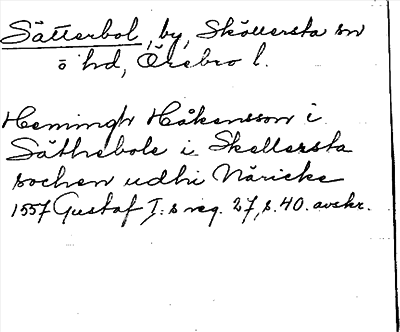 Sätterbol, by, Sköllersta sn
ö hd, Örebro l.
Hemingh Håkensson i
Säthrebole i Skellersta
sochen udhi Näricke
1557 Gustaf I:s reg. 27, s. 40. avskr.